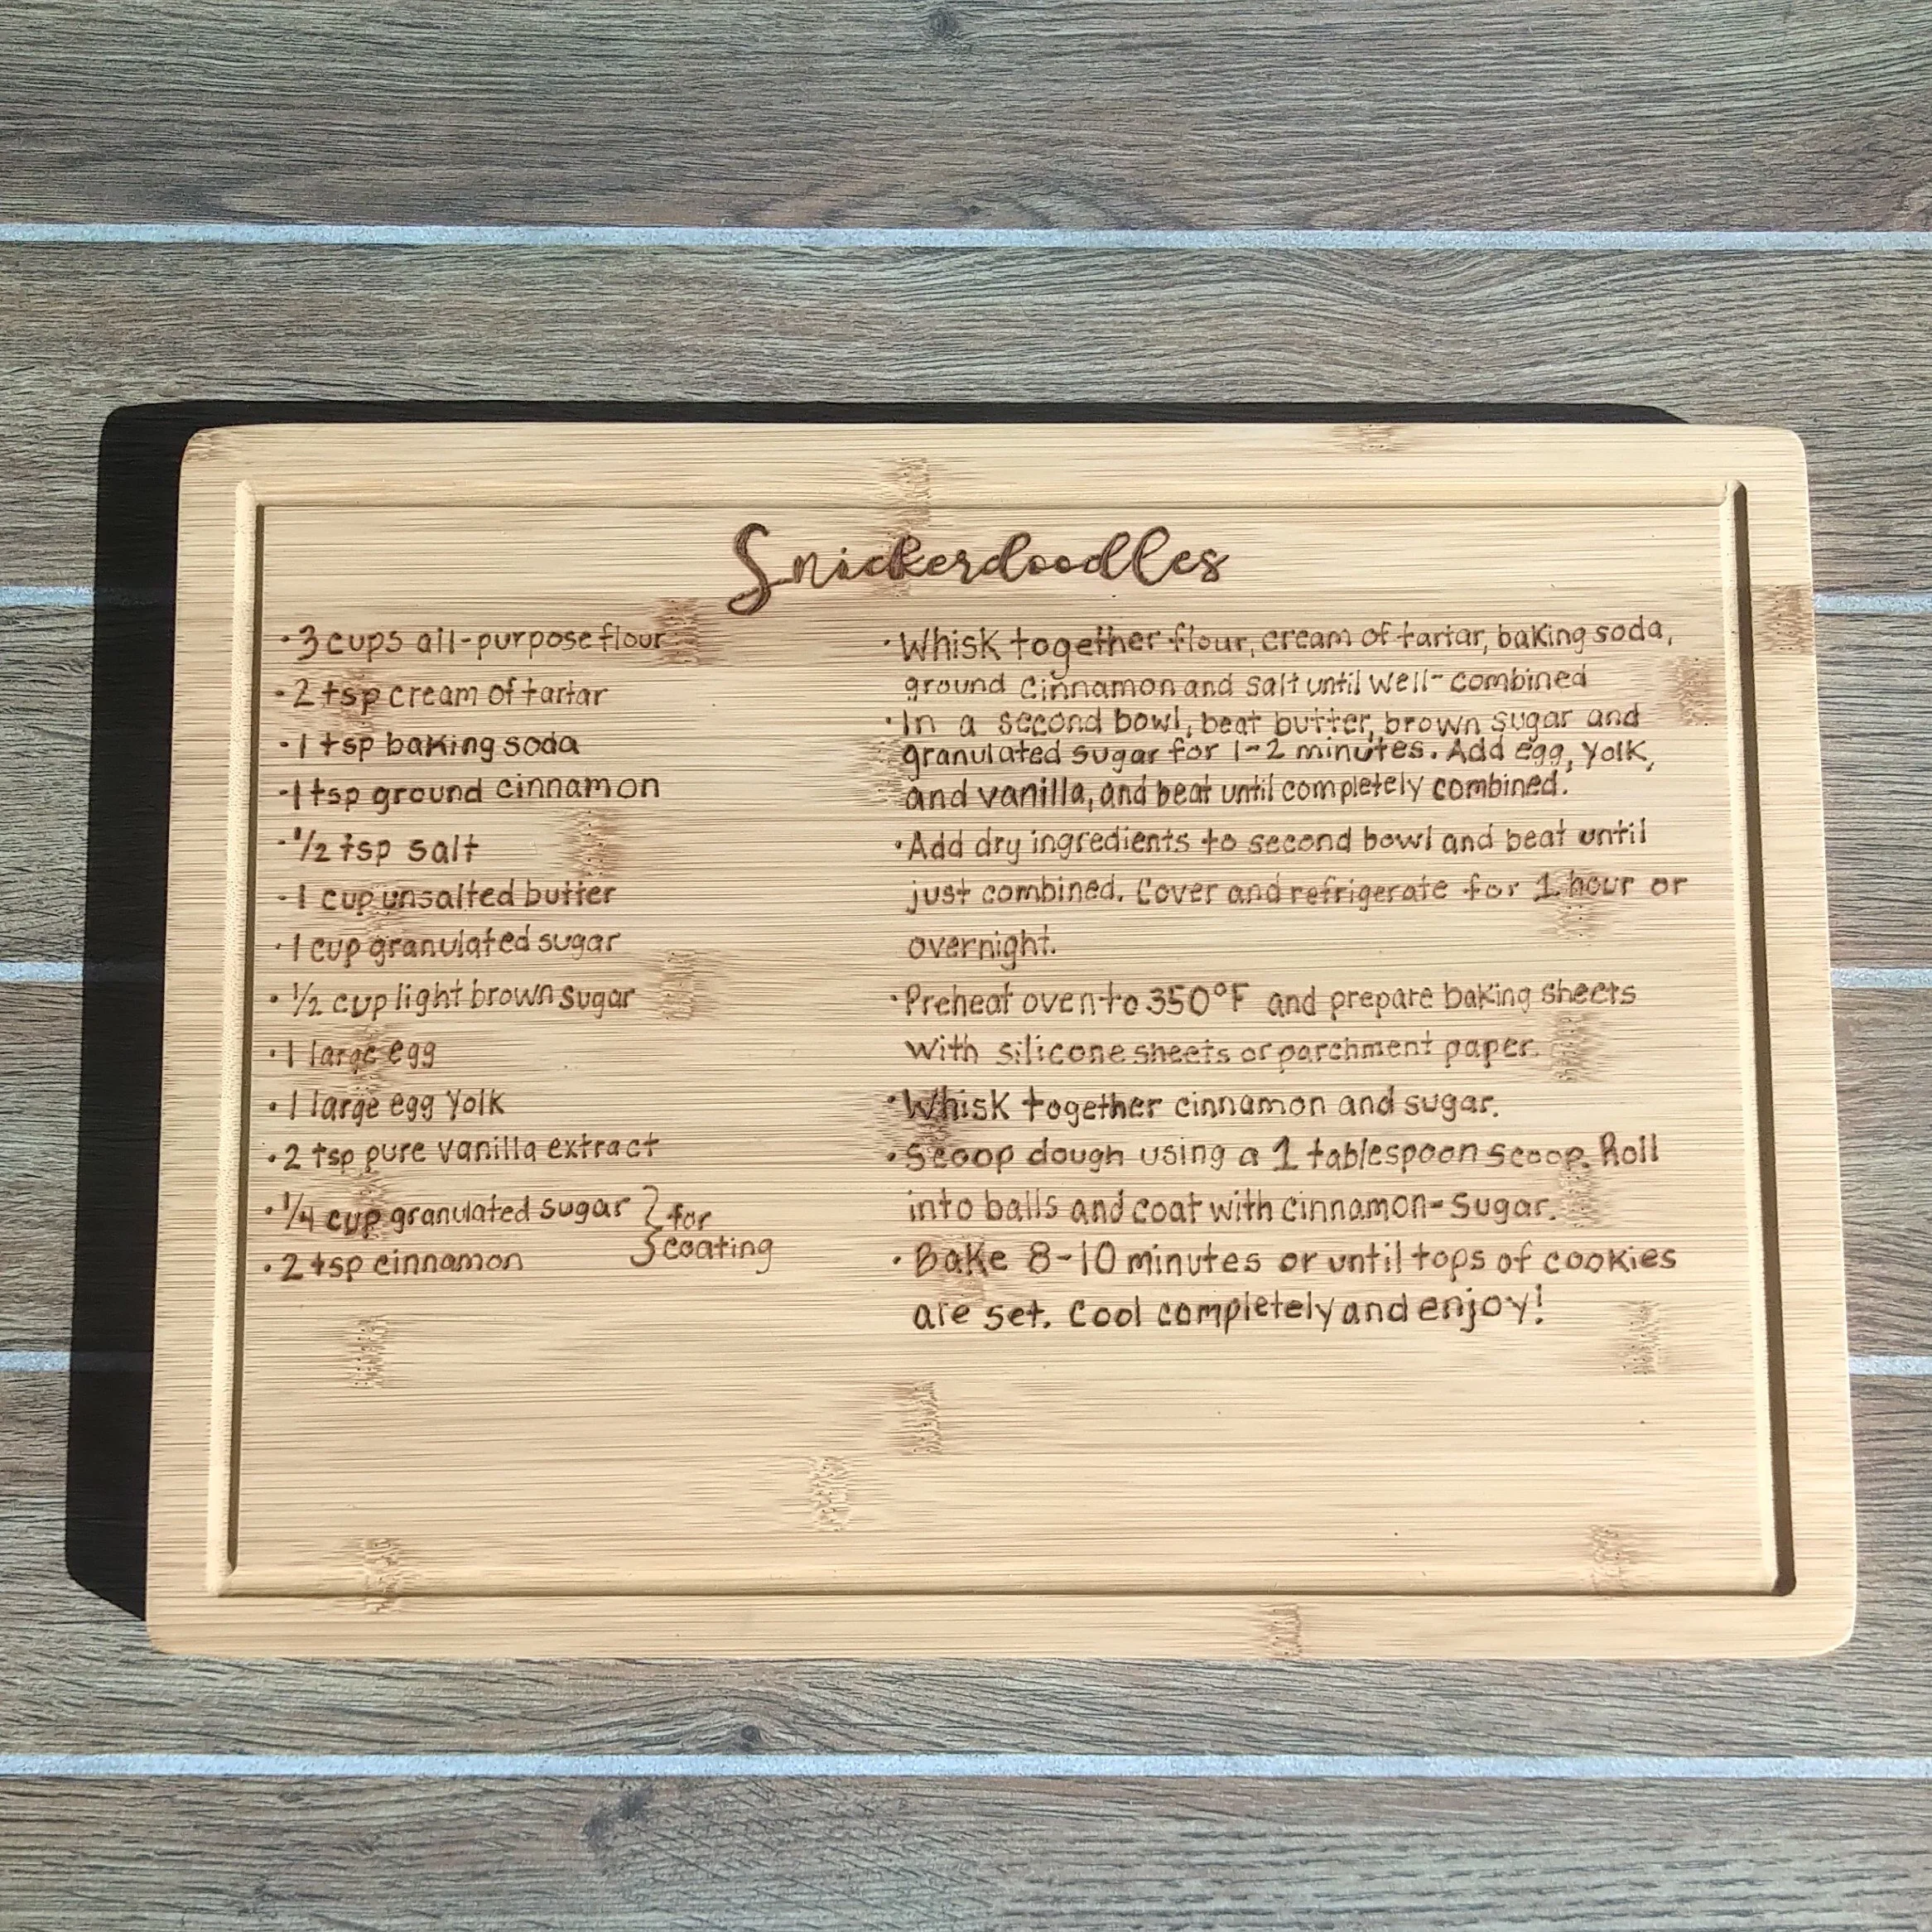 Snickerdoodles
· 3 cups all-purpose flour
· 2 tsp cream of tartar
· 1 tsp baking soda
· 1 tsp ground cinnamon
· 1/2 tsp salt
· 1 cup unsalted butter
· 1 cup granulated sugar
· 1/2 cup light brown sugar
· 1 large egg
· 1 large egg yolk
· 2 tsp pure vanilla extract
· 1/4 cup granulated sugar } for
· 2 tsp cinnamon } coating
· Whisk together flour, cream of tartar, baking soda,
ground cinnamon and salt until well-combined
· In a second bowl, beat butter, brown sugar and
granulated sugar for 1-2 minutes. Add egg, yolk,
and vanilla, and beat until completely combined.
· Add dry ingredients to second bowl and beat until
just combined. Cover and refrigerate for 1 hour or
overnight.
· Preheat oven to 350°F and prepare baking sheets
with silicone sheets or parchment paper.
· Whisk together cinnamon and sugar.
· Scoop dough using a 1 tablespoon scoop. Roll
into balls and coat with cinnamon-sugar.
· Bake 8-10 minutes or until tops of cookies
are set. Cool completely and enjoy!